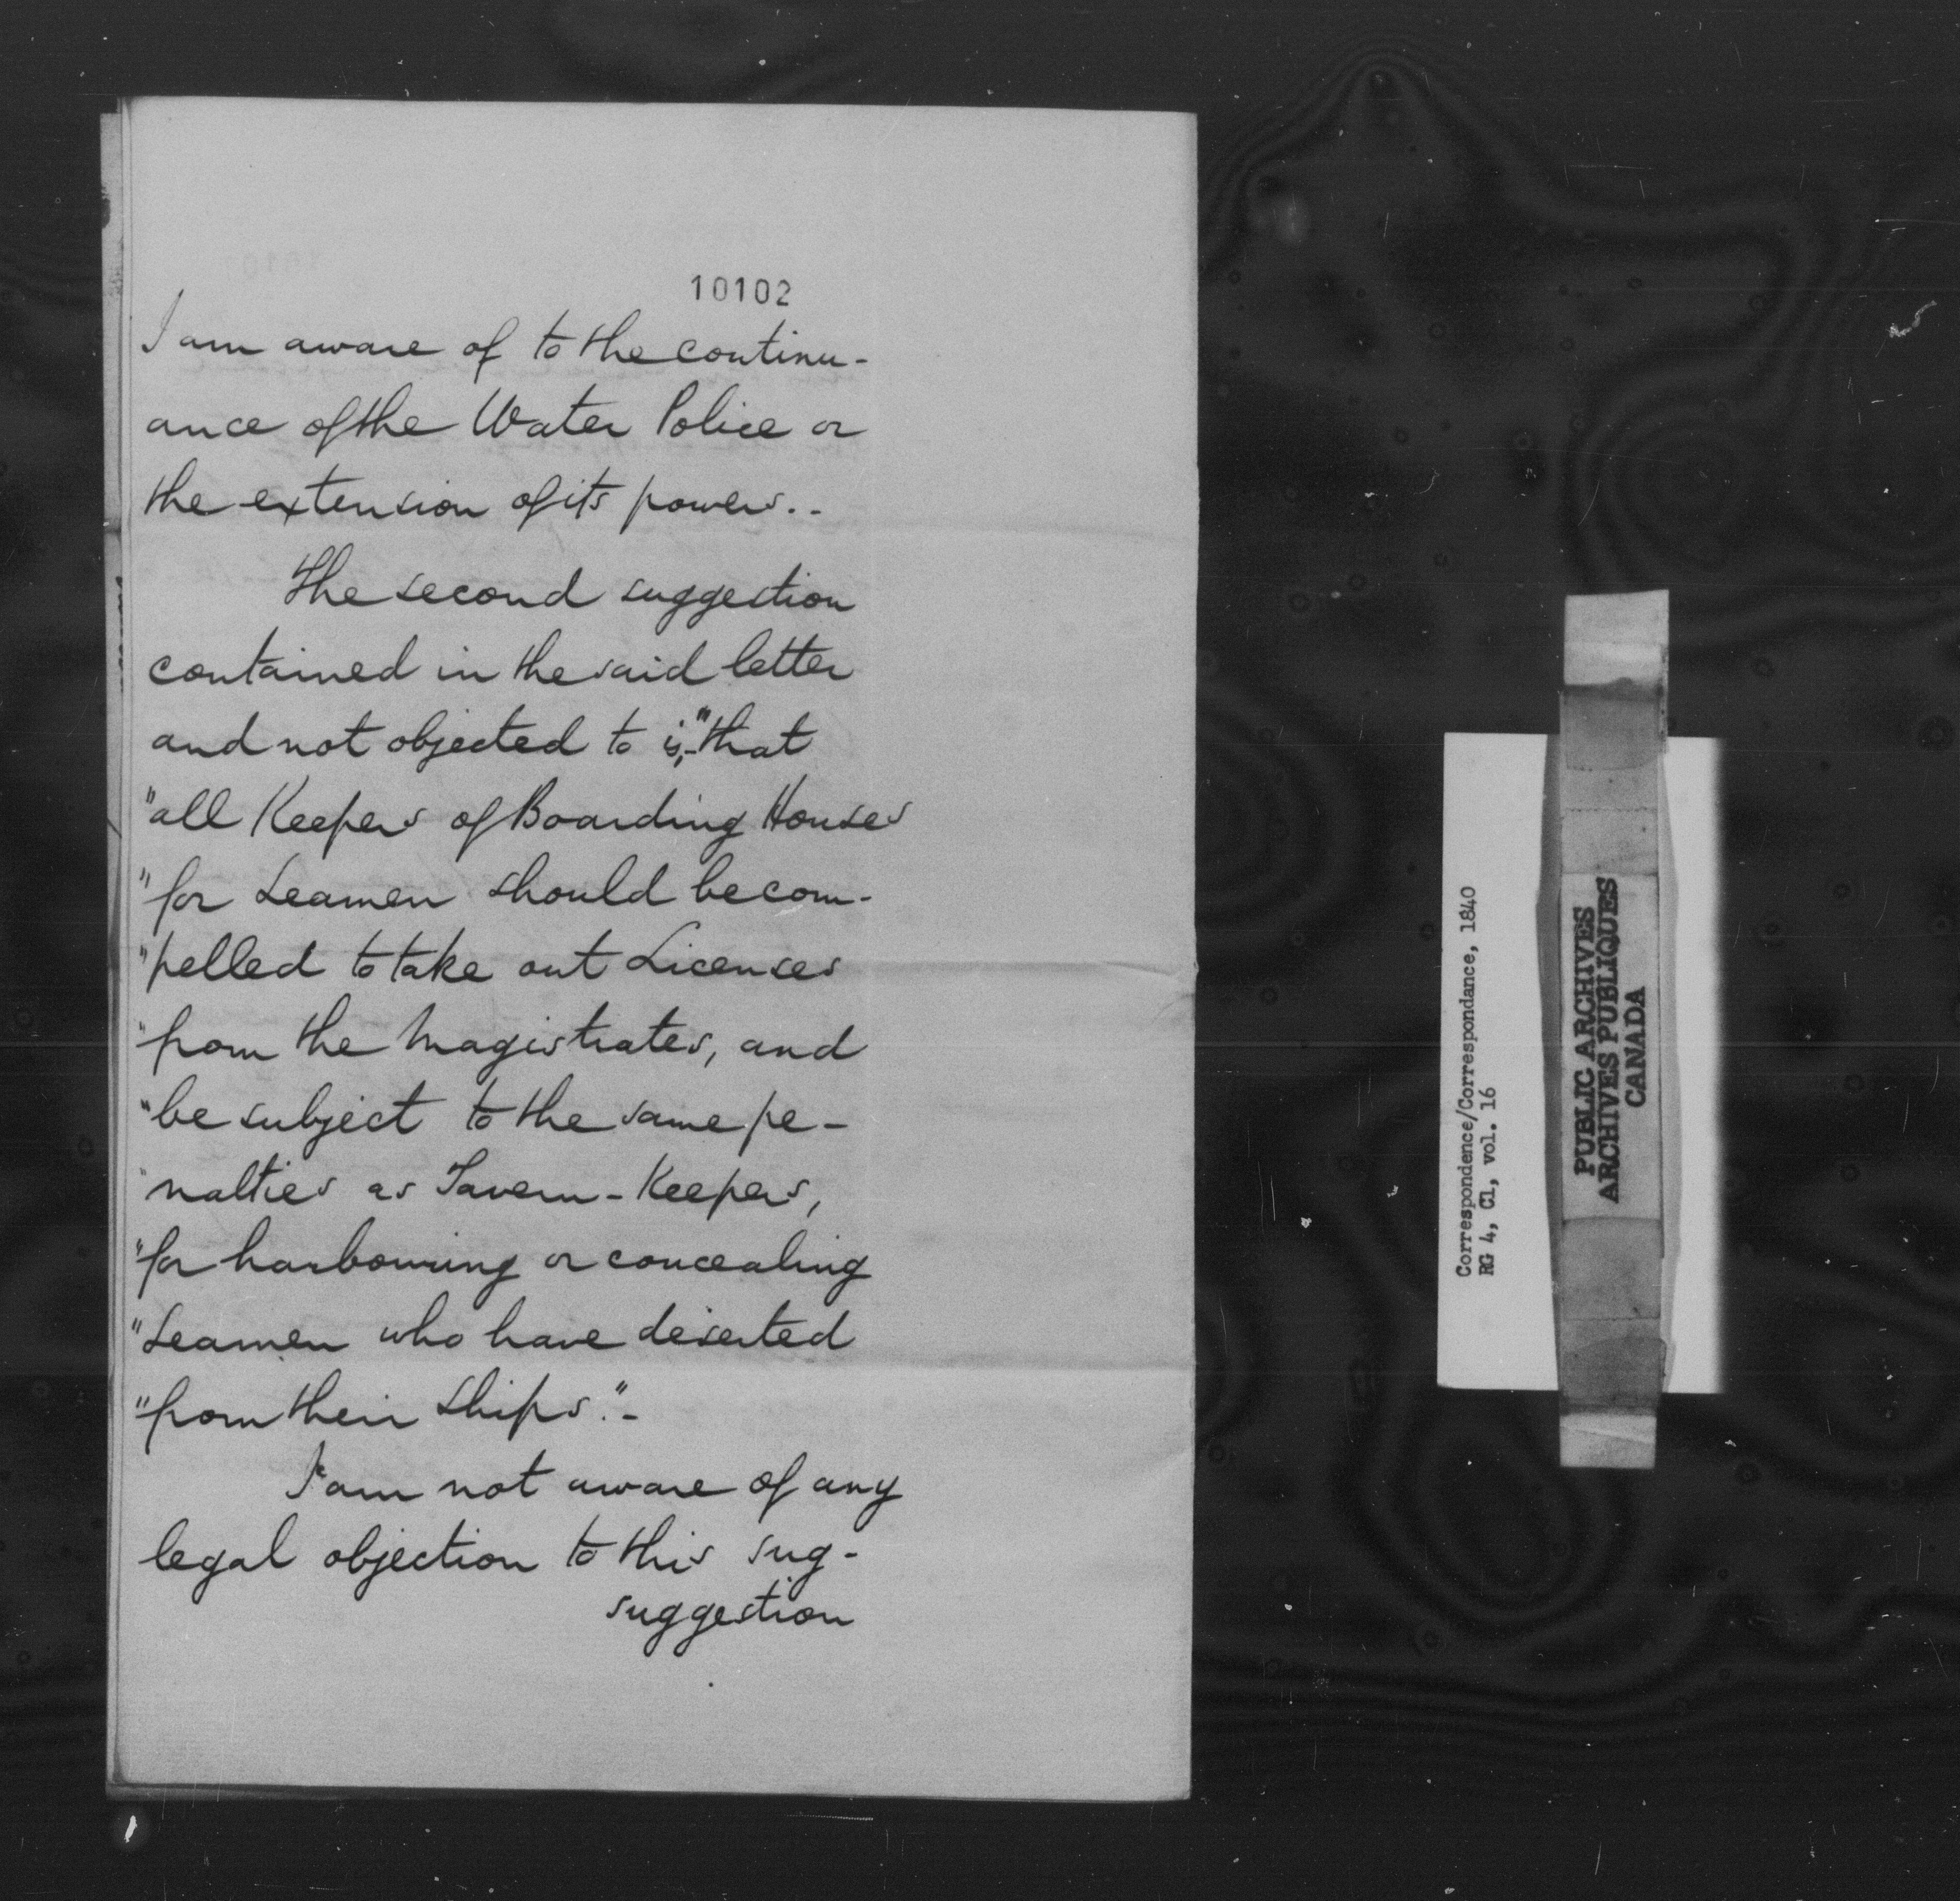 10102
I am aware of to the continu-
ance of the Water Police or
the extension of its powers..
The second suggestion
contained in the said letter
and not objected to is,- "that
"all Keepers of Boarding Houses
"for Seamen should be com-
"pelled to take out Licenses
"from the Magistrates, and
"be subject to the same pe-
"nalties as Tavern-Keepers,
"for harbouring or concealing
"Seamen who have deserted
"from their Ships."-
I am not aware of any
legal objection to this sug-
suggestion
Correspondence/Correspondance, 1840
RG 4, C1, vol. 16
PUBLIC ARCHIVES
ARCHIVES PUBLIQUES
CANADA